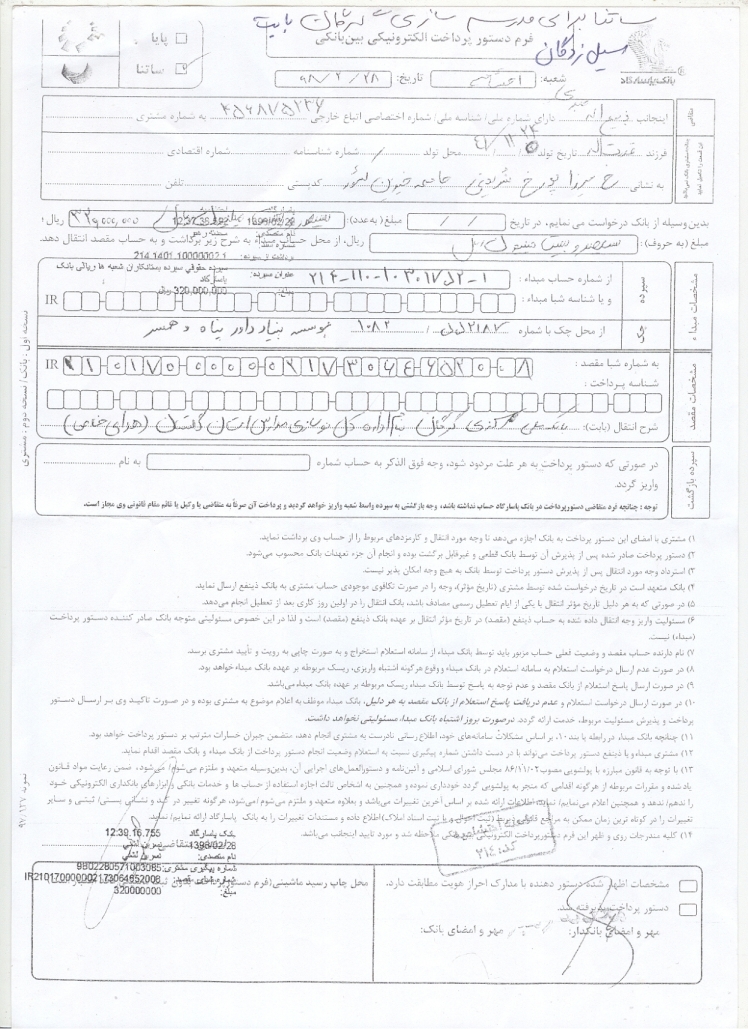 ساتنا برای مدرسه سازی گرگان بابت
سیل زدگان
فرم دستور پرداخت الکترونیکی بین‌بانکی
بانک پاسارگاد
پایا
ساتنا
شعبه:
تاریخ: ۹۸/۲/۲۸
اینجانب دارای شماره ملی/ شناسه ملی/ شماره اختصاصی اتباع خارجی به شماره مشتری
فرزند تاریخ تولد محل تولد شماره شناسنامه شماره اقتصادی
به نشانی کدپستی تلفن
بدین‌وسیله از بانک درخواست می نمایم، در تاریخ / / مبلغ (به‌عدد): ریال؛
مبلغ (به حروف): ریال، از محل حساب مبداء به شرح زیر برگشت و به حساب مقصد انتقال دهد.
12:37:35 1398/02/28
214.1401.10000002.1
سپرده حقوقی سپرده بستانکاران شعبه ها ریالی بانک پاسارگاد
320,000,000 ریال
مشخصات مبداء
سپرده
از شماره حساب مبداء :
و یا شناسه شبا مبداء : IR
چک
از محل چک با شماره موسسه بنیاد داور پناه و همسر
مشخصات مقصد
به شماره شبا مقصد : IR
شناسه پرداخت :
شرح انتقال (بابت): بانک ملی مرکزی گرگان اداره کل نوسازی مدارس استان گلستان
سپرده بازگشت
در صورتی که دستور پرداخت به هر علت مردود شود، وجه فوق الذکر به حساب شماره به نام
واریز گردد.
توجه : چنانچه فرد متقاضی دستورپرداخت در بانک پاسارگاد حساب نداشته باشد، وجه بازگشتی به سپرده واسط شعبه واریز خواهد گردید و پرداخت آن صرفاً به متقاضی یا وکیل یا قائم مقام قانونی وی مجاز است.
نسخه اول : بانک / نسخه دوم : مشتری
۱) مشتری با امضای این دستور پرداخت به بانک اجازه می‌دهد تا وجه مورد انتقال و کارمزدهای مربوط را از حساب وی برداشت نماید.
۲) دستور پرداخت صادر شده پس از پذیرش آن توسط بانک قطعی و غیرقابل برگشت بوده و انجام آن جزء تعهدات بانک محسوب می‌شود.
۳) استرداد وجه مورد انتقال پس از پذیرش دستور پرداخت توسط بانک به هیچ وجه امکان پذیر نیست.
۴) بانک متعهد است در تاریخ درخواست شده توسط مشتری (تاریخ مؤثر)، وجه را در صورت تکافوی موجودی حساب مشتری به بانک ذینفع ارسال نماید.
۵) در صورتی که به هر دلیل تاریخ مؤثر انتقال با یکی از ایام تعطیل رسمی مصادف باشد، بانک انتقال را در اولین روز کاری بعد از تعطیل انجام می‌دهد.
۶) مسئولیت واریز وجه انتقال داده شده به حساب ذینفع (مقصد) در تاریخ مؤثر انتقال بر عهده بانک ذینفع (مقصد) است و لذا در این خصوص مسئولیتی متوجه بانک صادر کننده دستور پرداخت
(مبداء) نیست.
۷) نام دارنده حساب مقصد و وضعیت فعلی حساب مزبور باید توسط بانک مبداء از سامانه استعلام استخراج و به صورت چاپی به رویت و تأیید مشتری برسد.
۸) در صورت عدم ارسال درخواست استعلام به سامانه استعلام در بانک مبداء و وقوع هرگونه اشتباه واریزی، ریسک مربوطه بر عهده بانک مبداء خواهد بود.
۹) در صورت ارسال پاسخ استعلام از بانک مقصد و عدم توجه به پاسخ توسط بانک مبداء ریسک مربوطه بر عهده بانک مبداء می‌باشد.
۱۰) در صورت ارسال درخواست استعلام و عدم دریافت پاسخ استعلام از بانک مقصد به هر دلیل، بانک مبداء، موظف به اعلام موضوع به مشتری بوده و در صورت تاکید وی بر ارسال دستور
پرداخت و پذیرش مسئولیت مربوط، خدمت ارائه گردد. در صورت بروز اشتباه بانک مبداء، مسئولیتی نخواهد داشت.
۱۱) چنانچه بانک مبداء در رابطه با بند ۱۰، بر اساس مشکلات سامانه‌های خود، اطلاع رسانی نادرست به مشتری انجام دهد، متضمن جبران خسارات مترتب بر دستور پرداخت خواهد بود.
۱۲) مشتری مبداء و یا ذینفع دستور پرداخت می‌تواند با در دست داشتن شماره پیگیری نسبت به استعلام وضعیت انجام دستور پرداخت از بانک مبداء و بانک مقصد اقدام نماید.
۱۳) با توجه به قانون مبارزه با پولشویی مصوب ۸۶/۱۱/۰۲ مجلس شورای اسلامی و آئین‌نامه و دستورالعمل‌های اجرایی آن، بدین‌وسیله متعهد و ملتزم می‌شوم/ می‌شود، ضمن رعایت مواد قانون
یاد شده و مقررات مربوطه از هرگونه اقدامی که منجر به پولشویی گردد خودداری نموده و همچنین به اشخاص ثالث اجازه استفاده از حساب ها و خدمات بانکی و ابزارهای بانکداری الکترونیکی خود
را ندهم/ ندهد و همچنین اعلام می‌نمایم/ نماید، اطلاعات ارائه شده بر اساس آخرین تغییرات می‌باشد و بعلاوه متعهد و ملتزم می‌شوم/ می‌شود، هرگونه تغییر در کد و نشانی پستی/ ثبتی و سایر
تغییرات را در کوتاه ترین زمان ممکن به مراجع قانونی ذیربط (ثبت احوال و یا ثبت اسناد املاک) اطلاع داده و مستندات تغییرات را به بانک پاسارگاد ارائه نمایم/ نماید.
۱۴) کلیه مندرجات روی و ظهر این فرم دستورپرداخت الکترونیکی بین‌بانکی ملاحظه شد و مورد تایید اینجانب می‌باشد.
نمونه ۹۷/۱۲۷
بانک پاسارگاد 12:39:16.755
1398/02/28
نام متصدی:
شماره پیگیری مشتری: 9802280571003085
شماره شبای مقصد: IR210170000002173064652008
مبلغ: 320000000
محل چاپ رسید ماشینی
مشخصات اظهار شده دستور دهنده با مدارک احراز هویت مطابقت دارد.
دستور پرداخت پذیرفته شد.
مهر و امضای بانکدار: مهر و امضای بانک: